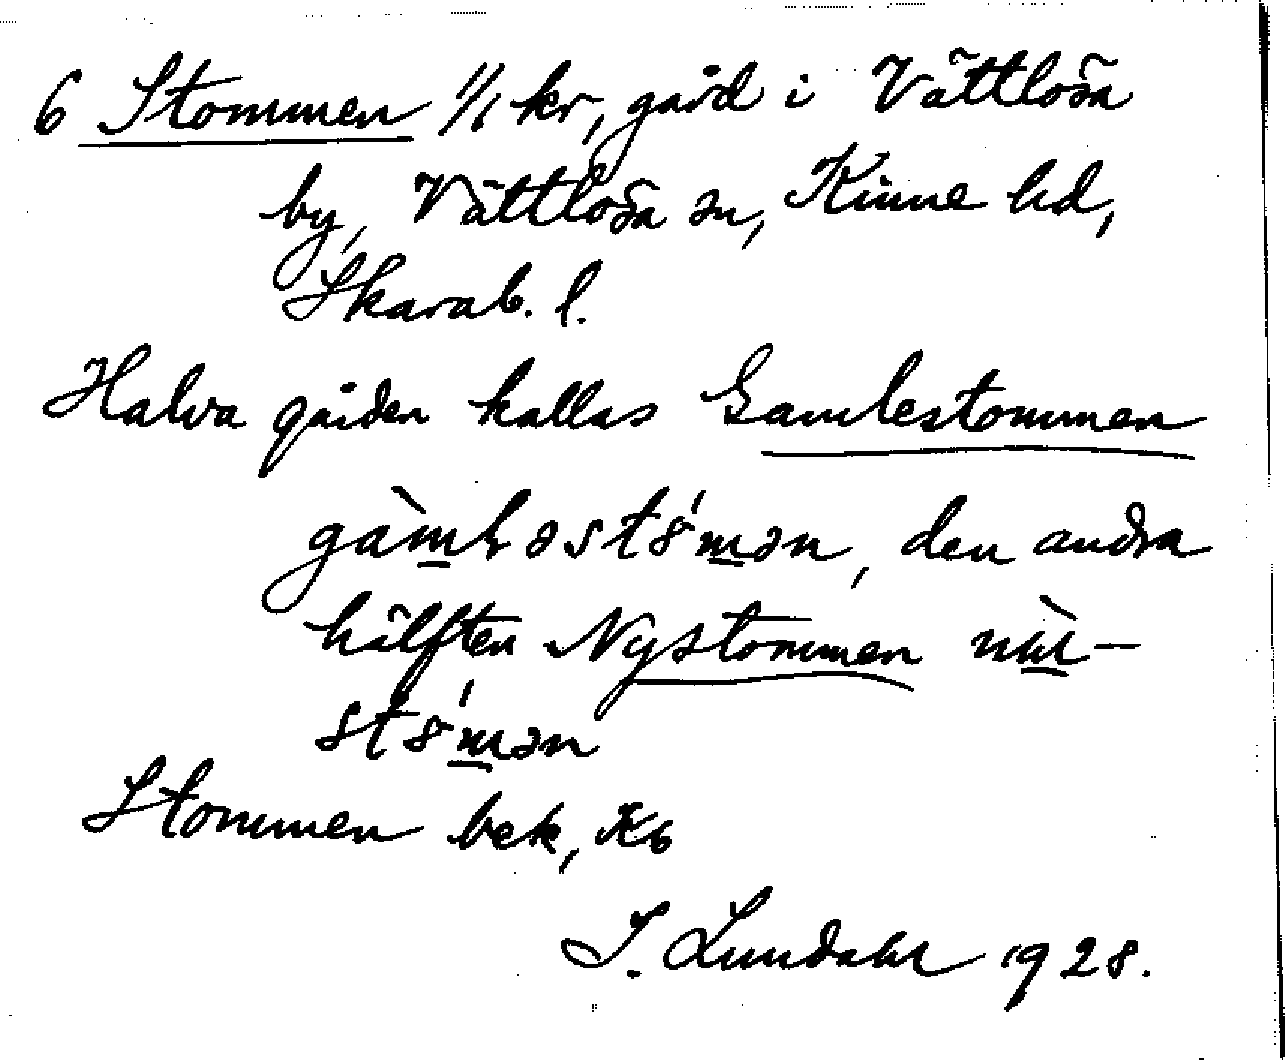 6 Stommen 1/1 kr, gård i Vättlösa
by, Vättlösa sn, Kinne hd,
Skarab. l.
Halva gården kallas Gamlestommen
den andra
hälften Nystommen
Stommen bek, Kb
I. Lundahl 1928.